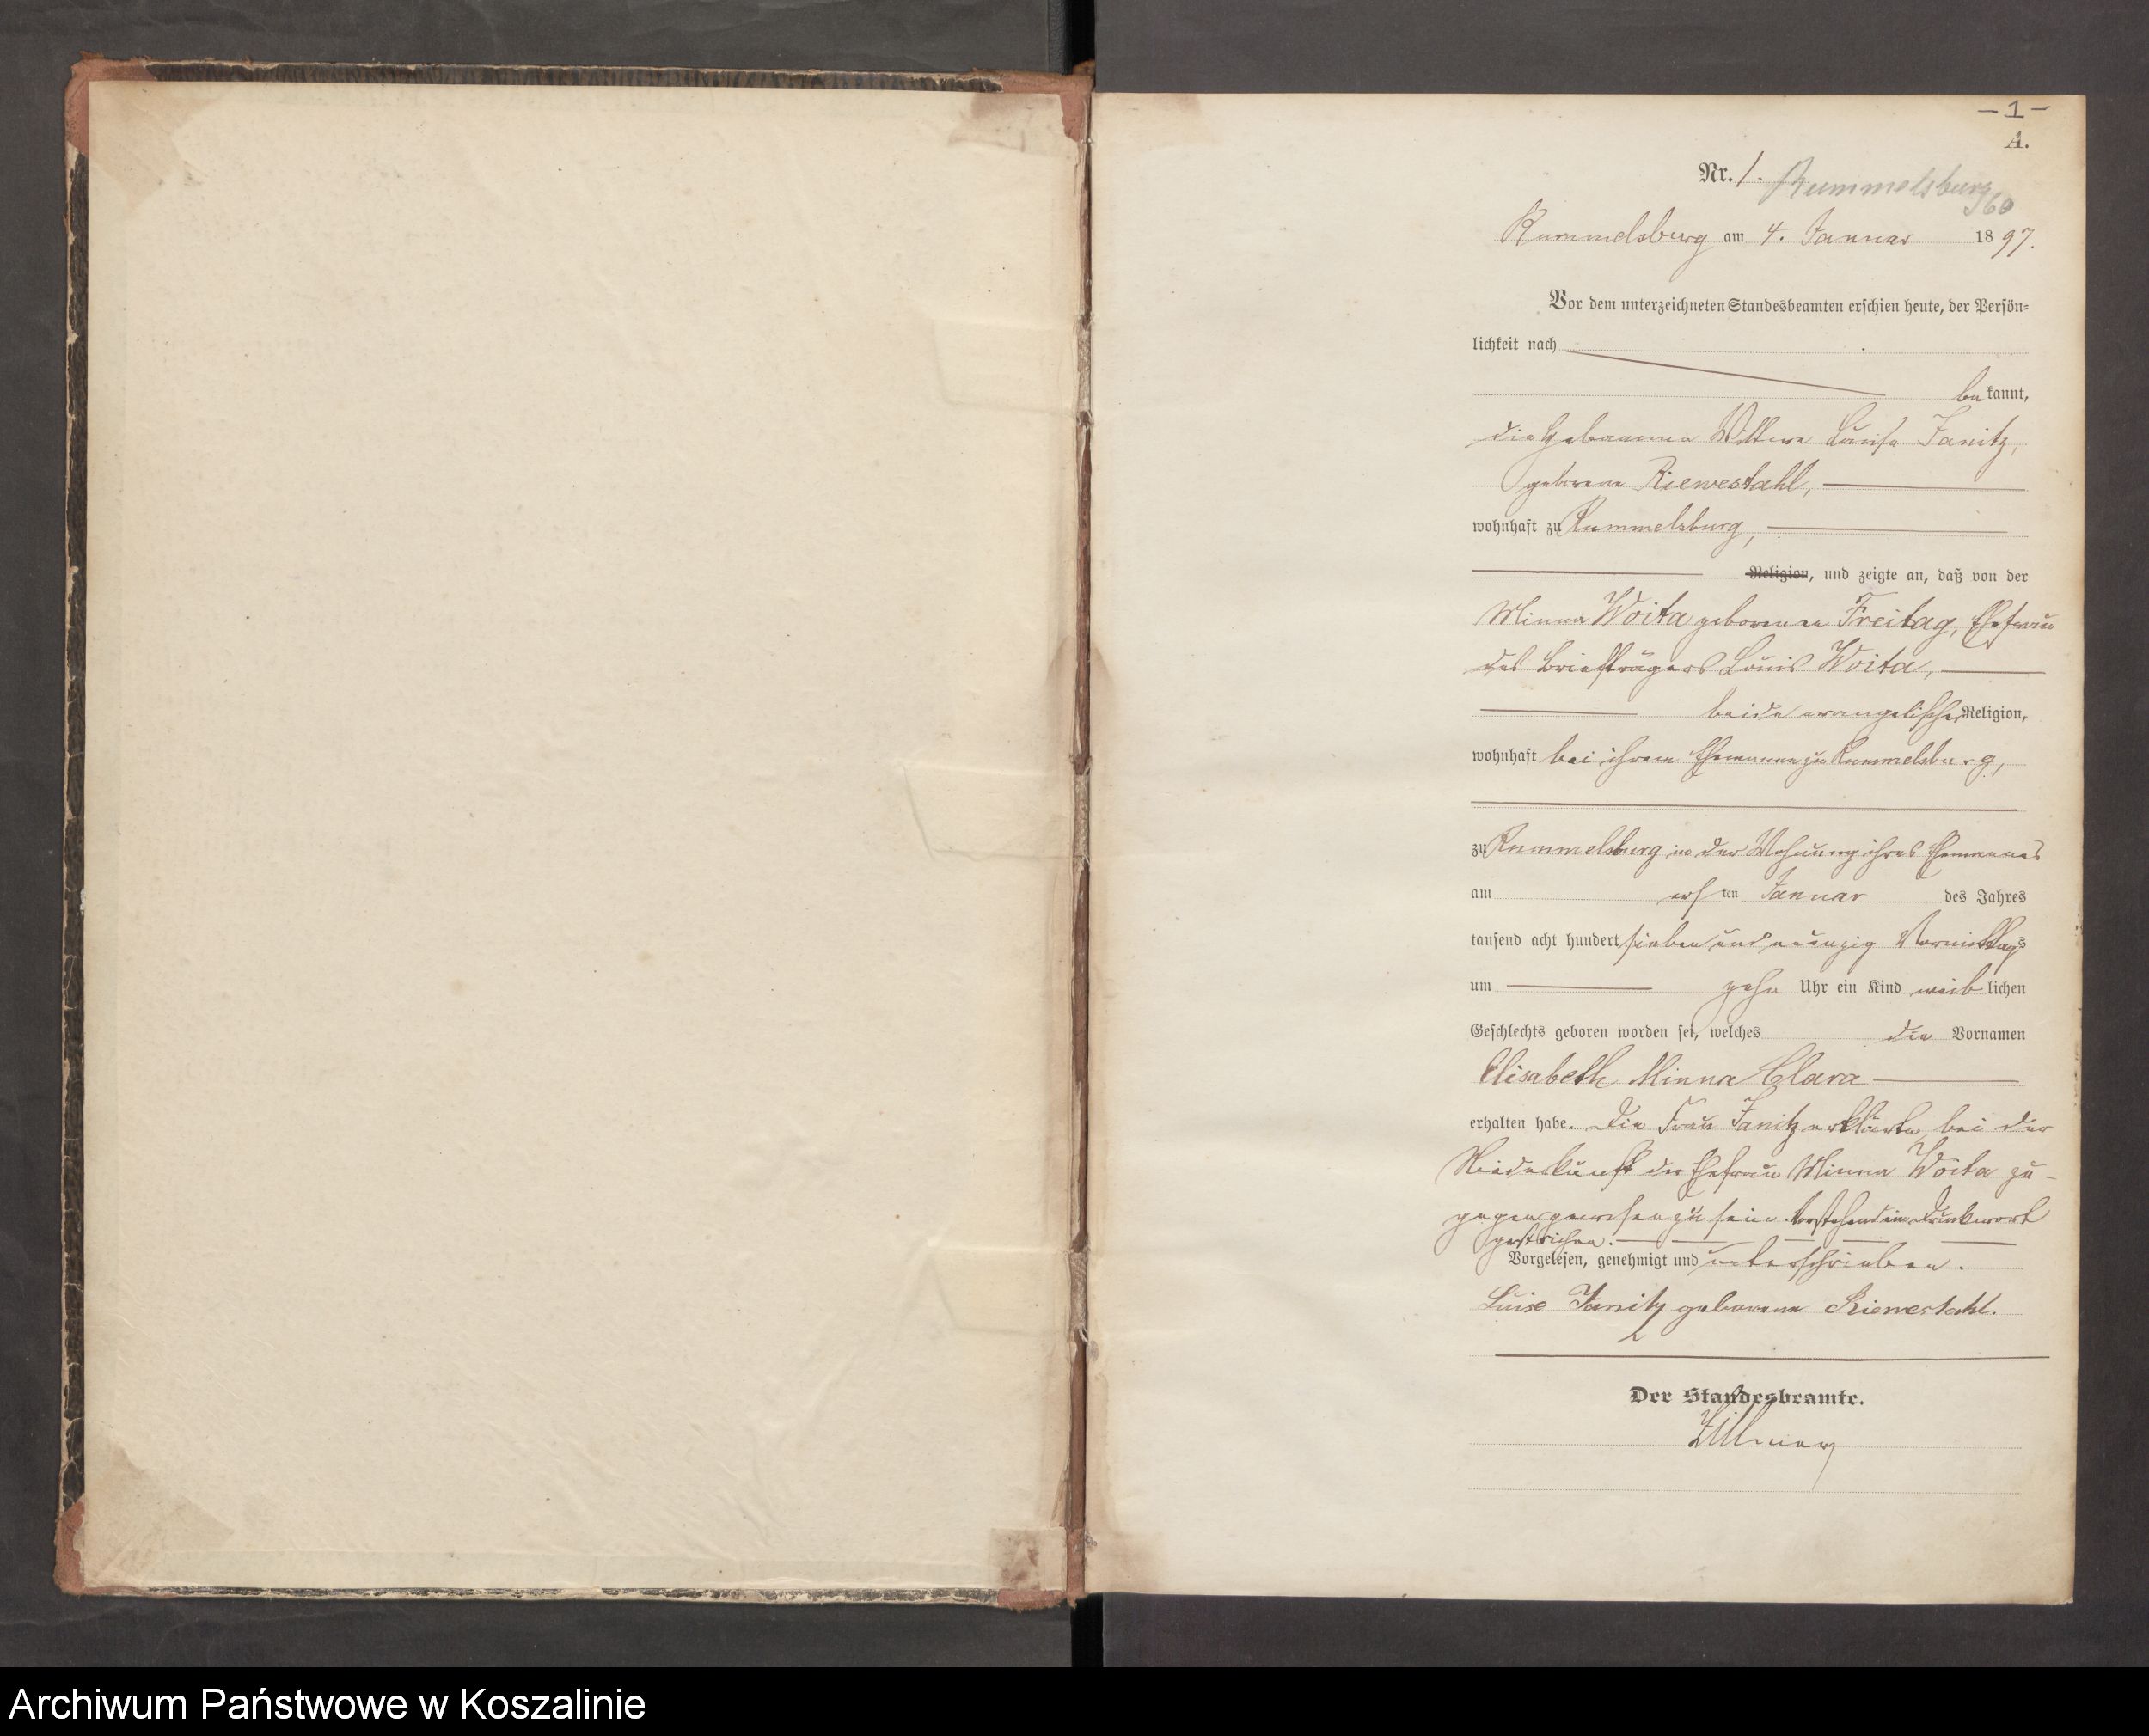 – 1 –
A.
Nr. 1.
Rummelsburg
60
Rummelsburg am 4. Januar 1897.
Vor dem unterzeichneten Standesbeamten erschien heute, der Persön-
lichkeit nach
bekannt,
die Hebamme Wittwe Louise Janitz,
geborene Riewestahl,
wohnhaft zu Rummelsburg,
Religion, und zeigte an, daß von der
Minna Woita geborenen Freitag, Ehefrau
des Briefträgers Louis Woita,
beide evangelischer Religion,
wohnhaft bei ihrem Ehemanne zu Rummelsburg,
zu Rummelsburg in der Wohnung ihres Ehemannes
am ersten Januar des Jahres
tausend acht hundert sieben und neunzig Vormittags
um zehn Uhr ein Kind weiblichen
Geschlechts geboren worden sei, welches die Vornamen
Elisabeth Minna Clara
erhalten habe. Die Frau Janitz erklärte, bei der
Niederkunft der Ehefrau Minna Woita zu-
gegen gewesen zu sein. Vorstehend ein Druckwort
gestrichen.
Vorgelesen, genehmigt und unterschrieben.
Luise Janitz geborene Riewestahl.
Der Standesbeamte.
Zillmer
Archiwum Państwowe w Koszalinie